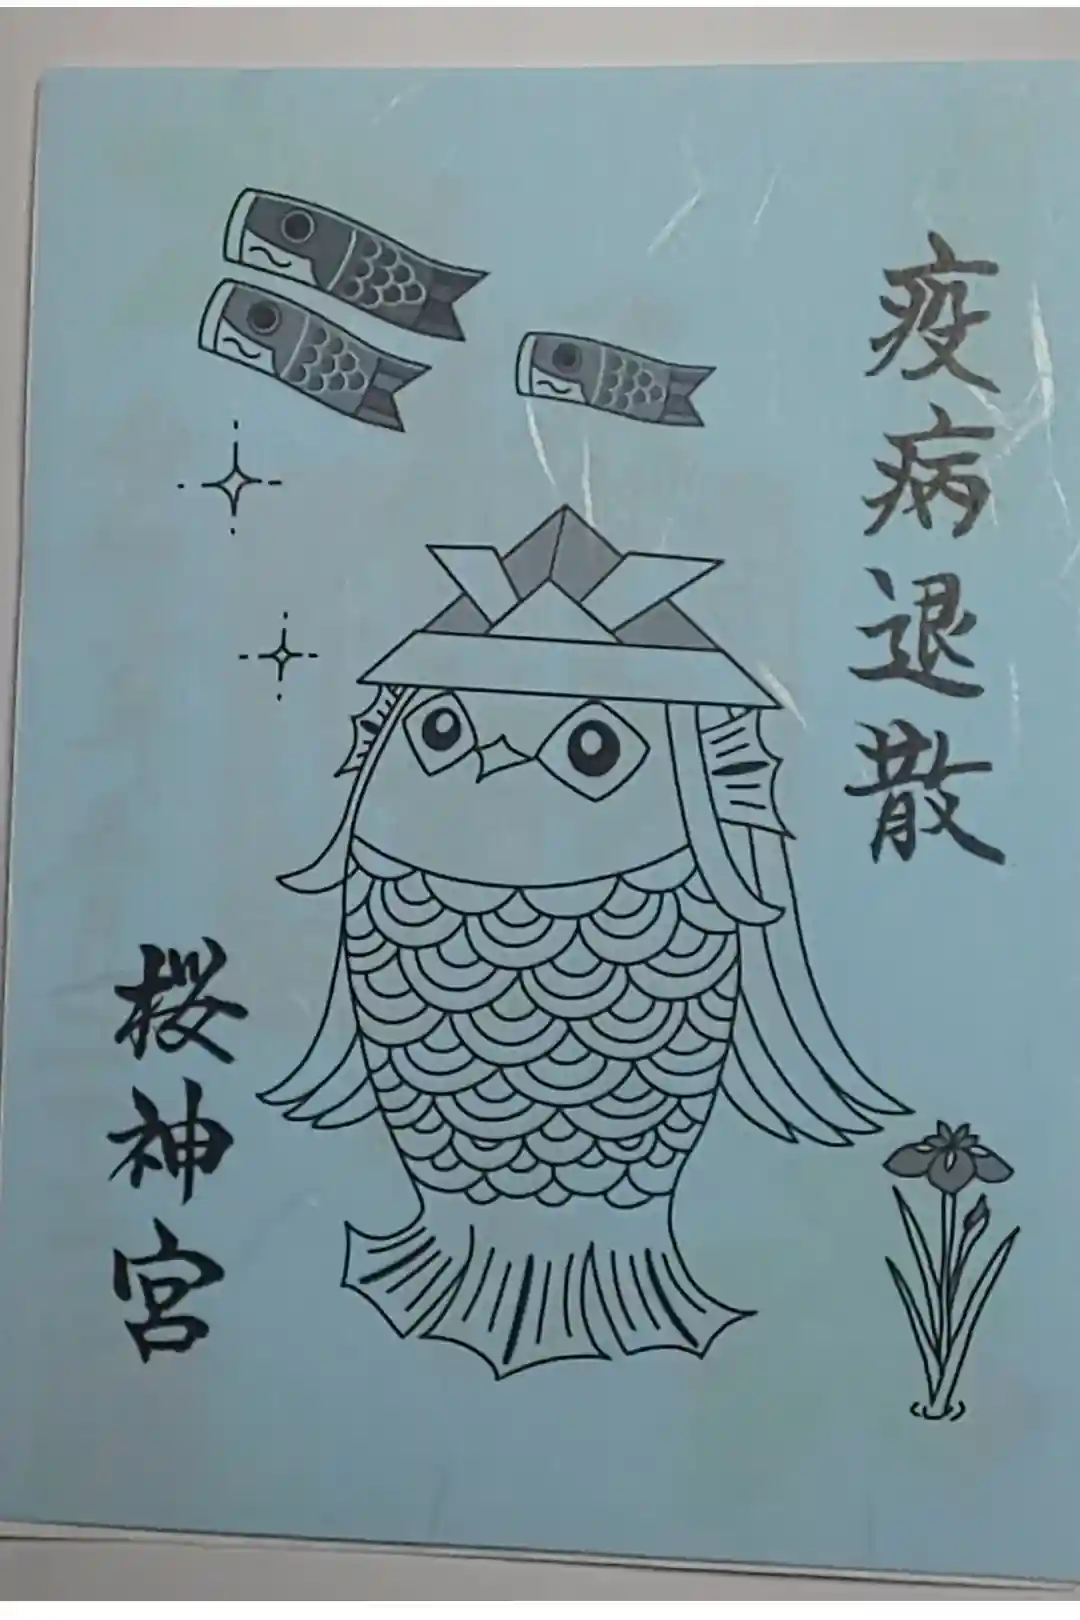 疫病退散
桜神宮